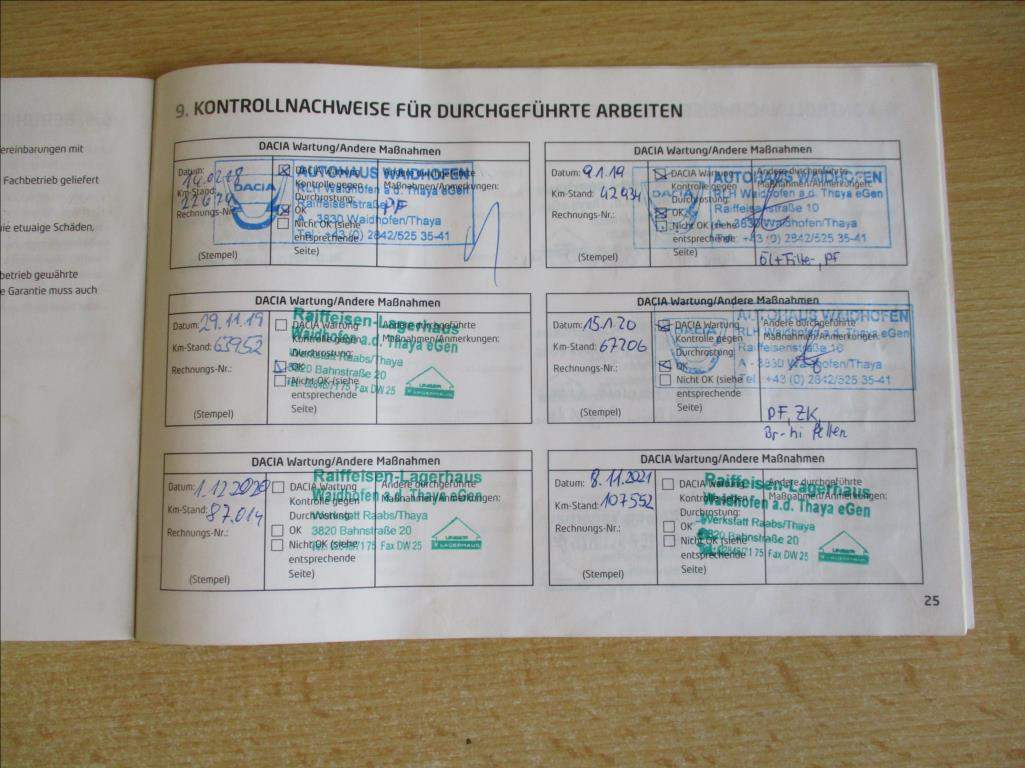 ereinbarungen mit
Fachbetrieb geliefert
ie etwaige Schäden,
betrieb gewährte
e Garantie muss auch
9. KONTROLLNACHWEISE FÜR DURCHGEFÜHRTE ARBEITEN
DACIA Wartung/Andere Maßnahmen
Datum:
Km-Stand:
Rechnungs-Nr.:
(Stempel)
DACIA Wartung
Kontrolle gegen
Durchrostung:
OK
Nicht OK (siehe
entsprechende
Seite)
Andere durchgeführte
Maßnahmen/Anmerkungen:
PF
DACIA
AUTOHAUS WAIDHOFEN
RLH Waidhofen a.d. Thaya eGen
Raiffeisenstraße
A - 3830 Waidhofen/Thaya
Tel.: +43 (0) 2842/525 35-41
DACIA Wartung/Andere Maßnahmen
Datum: 9.1.19
Km-Stand: 42934
Rechnungs-Nr.:
(Stempel)
DACIA Wartung
Kontrolle gegen
Durchrostung:
OK
Nicht OK (siehe
entsprechende
Seite)
Andere durchgeführte
Maßnahmen/Anmerkungen:
Öl+Filter, PF
DACIA
AUTOHAUS WAIDHOFEN
RLH Waidhofen a.d. Thaya eGen
Raiffeisenstraße 10
A - 3830 Waidhofen/Thaya
Tel.: +43 (0) 2842/525 35-41
DACIA Wartung/Andere Maßnahmen
Datum: 29.11.19
Km-Stand: 63952
Rechnungs-Nr.:
(Stempel)
DACIA Wartung
Kontrolle gegen
Durchrostung:
OK
Nicht OK (siehe
entsprechende
Seite)
Andere durchgeführte
Maßnahmen/Anmerkungen:
Raiffeisen-Lagerhaus
Waidhofen a.d. Thaya eGen
Werkstatt Raabs/Thaya
3820 Bahnstraße 20
Tel. 02846/7175 Fax DW 25
UNSER
LAGERHAUS
DACIA Wartung/Andere Maßnahmen
Datum: 15.1.20
Km-Stand: 67206
Rechnungs-Nr.:
(Stempel)
DACIA Wartung
Kontrolle gegen
Durchrostung:
OK
Nicht OK (siehe
entsprechende
Seite)
Andere durchgeführte
Maßnahmen/Anmerkungen:
PF, ZK,
DACIA
AUTOHAUS WAIDHOFEN
RLH Waidhofen a.d. Thaya eGen
Raiffeisenstraße 10
A - 3830 Waidhofen/Thaya
Tel.: +43 (0) 2842/525 35-41
DACIA Wartung/Andere Maßnahmen
Datum: 1.12.2020
Km-Stand: 87.014
Rechnungs-Nr.:
(Stempel)
DACIA Wartung
Kontrolle gegen
Durchrostung:
OK
Nicht OK (siehe
entsprechende
Seite)
Andere durchgeführte
Maßnahmen/Anmerkungen:
Raiffeisen-Lagerhaus
Waidhofen a.d. Thaya eGen
Werkstatt Raabs/Thaya
3820 Bahnstraße 20
Tel. 02846/7175 Fax DW 25
UNSER
LAGERHAUS
DACIA Wartung/Andere Maßnahmen
Datum: 8.11.2021
Km-Stand: 107552
Rechnungs-Nr.:
(Stempel)
DACIA Wartung
Kontrolle gegen
Durchrostung:
OK
Nicht OK (siehe
entsprechende
Seite)
Andere durchgeführte
Maßnahmen/Anmerkungen:
Raiffeisen-Lagerhaus
Waidhofen a.d. Thaya eGen
Werkstatt Raabs/Thaya
3820 Bahnstraße 20
Tel. 02846/7175 Fax DW 25
UNSER
LAGERHAUS
25